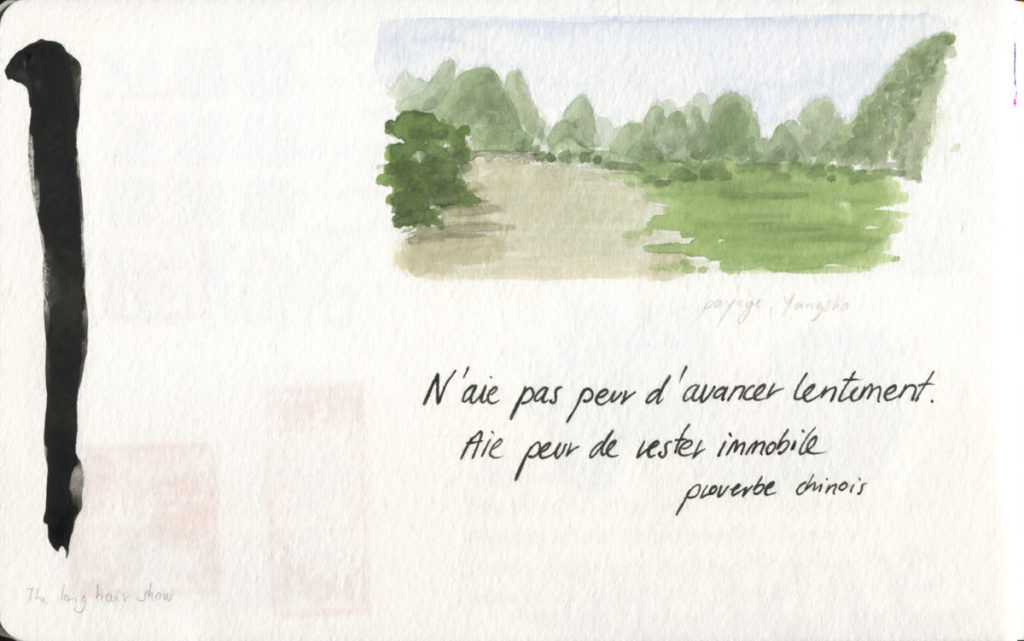 payage, Yangsho
N'aie pas peur d'avancer lentement.
Aie peur de rester immobile
proverbe chinois
The long hair show